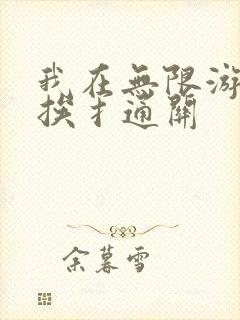 我在無限游
挨扌通關
余暮雪